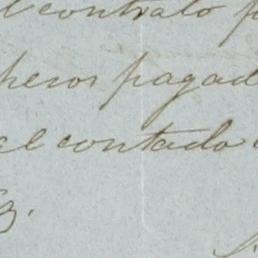 el contrato p
hesos pagad
al contado